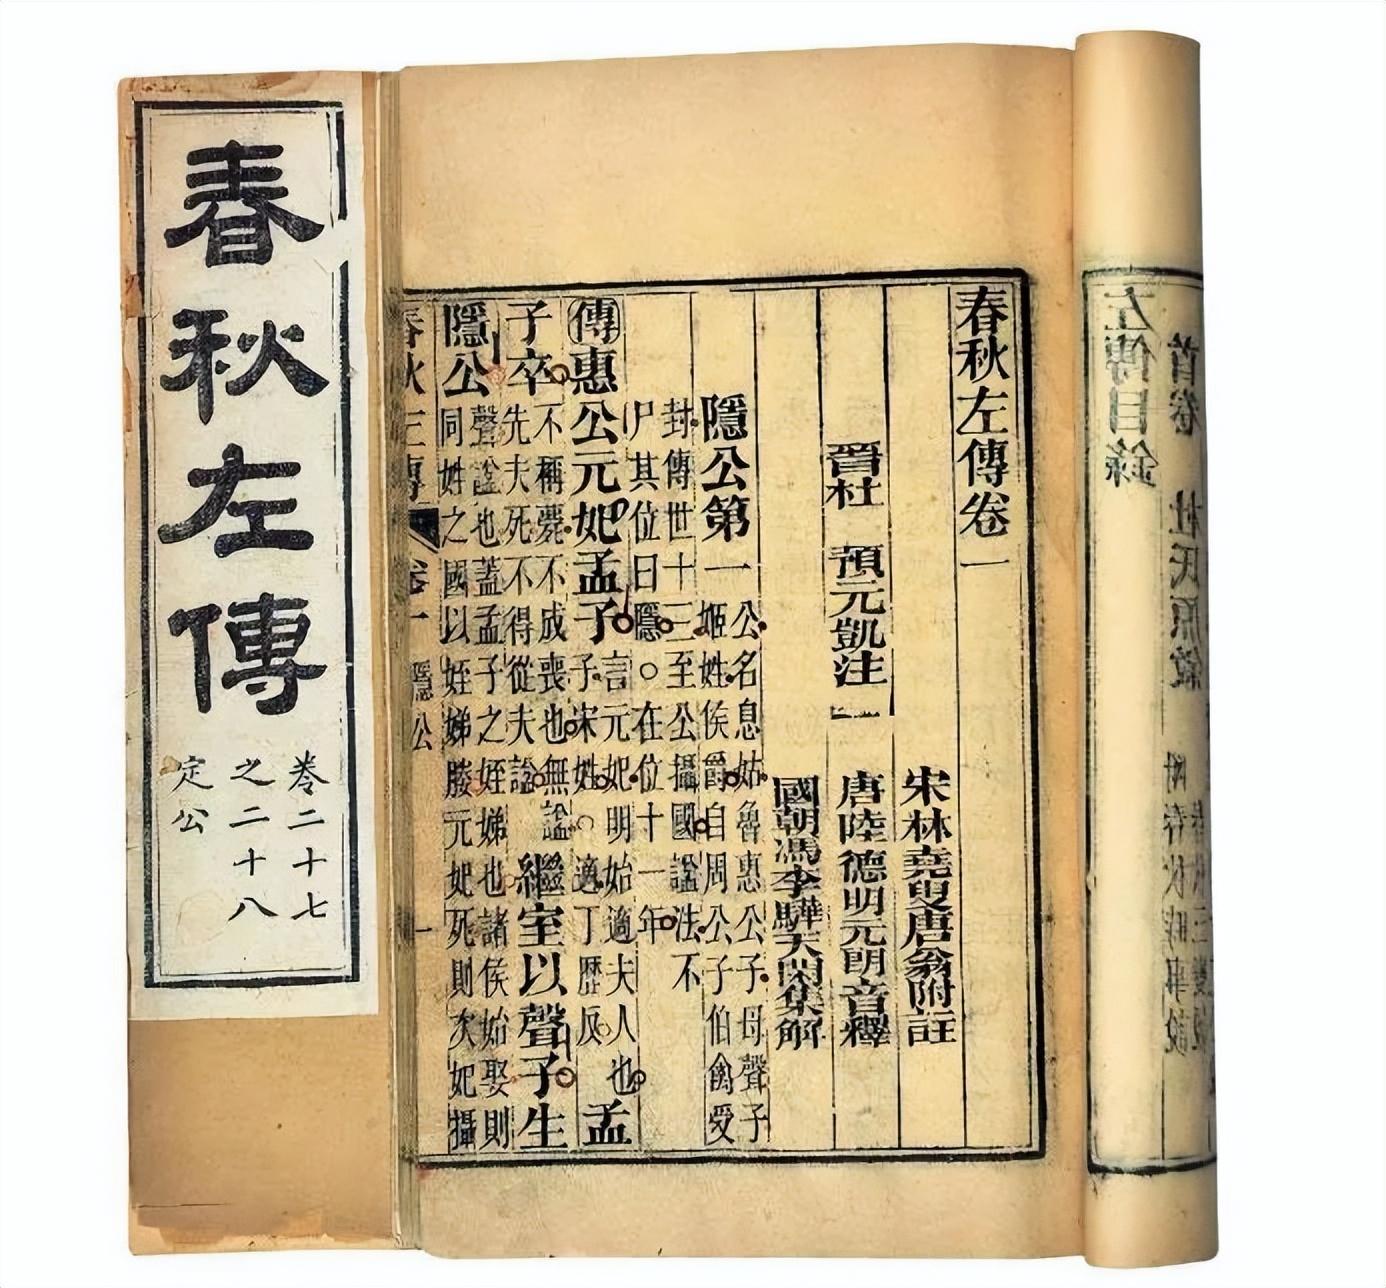 春秋左傳
卷二十七
之二十八
定公
左傳目錄
首卷 杜氏原
春秋左傳卷一
宋林堯叟唐翁附註
晉杜 預元凱注 唐陸德明元朗音釋
國朝馮李驊天閑集解
隱公第一 公名息姑魯惠公子母聲子
姬姓侯爵自周公子伯禽受
封傳世十三至公攝國諡法不
尸其位曰隱○在位十一年
傳惠公元妃孟子 言元妃明始適夫人也
子宋姓○適丁歷反 孟
子卒 不稱薨不成喪也無諡
先夫死不得從夫諡 繼室以聲子生
隱公 聲諡也蓋孟子之姪娣也諸侯始娶則
同姓之國以姪娣媵元妃死則次妃攝
春秋三傳 卷一 隱公 一